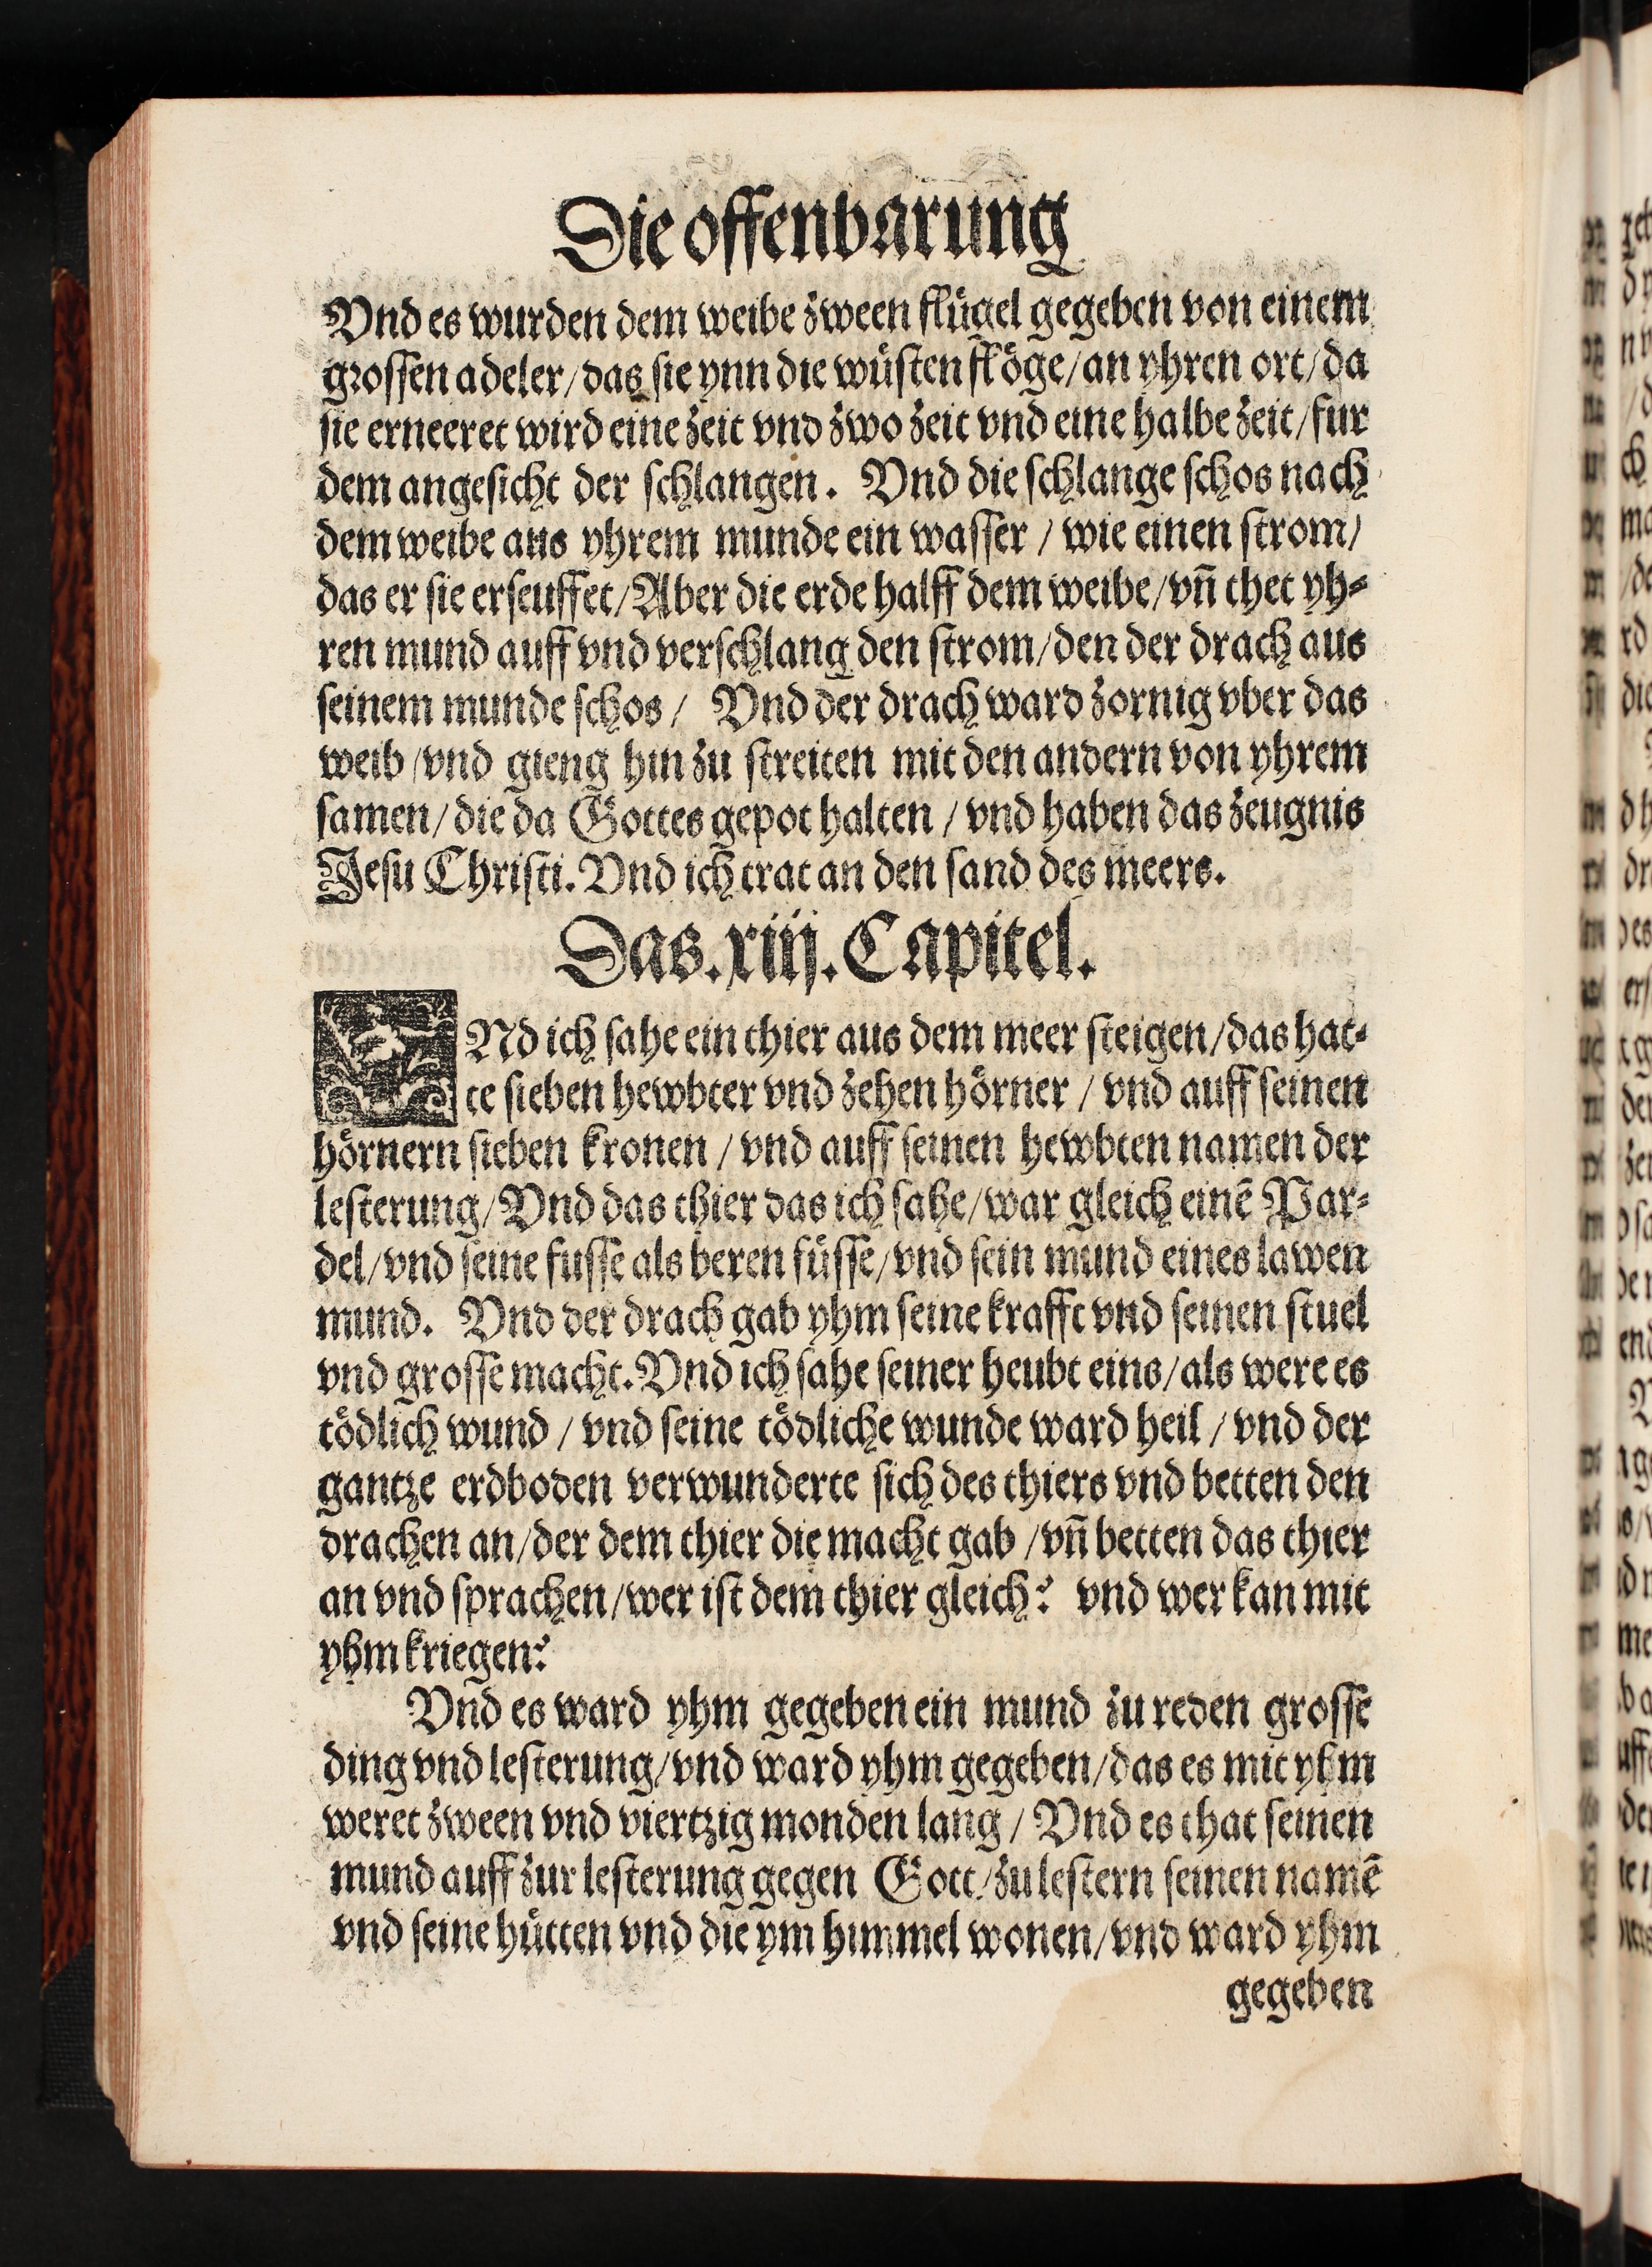 Die offenbarung
Vnd es wurden dem weibe zween flügel gegeben von einem
grossen adeler/das sie ynn die wüsten flöge/an yhren ort/da
sie erneeret wird eine zeit vnd zwo zeit vnd eine halbe zeit/fur
dem angesicht der schlangen. Vnd die schlange schos nach
dem weibe aus yhrem munde ein wasser / wie einen strom/
das er sie erseuffet/Aber die erde halff dem weibe/vñ thet yh⸗
ren mund auff vnd verschlang den strom/den der drach aus
seinem munde schos / Vnd der drach ward zornig vber das
weib/vnd gieng hin zu streiten mit den andern von yhrem
samen/die da Gottes gepot halten / vnd haben das zeugnis
Jesu Christi. Vnd ich trat an den sand des meers.
Das.xiij.Capitel.
VNd ich sahe ein thier aus dem meer steigen/das hat⸗
te sieben hewbter vnd zehen hörner / vnd auff seinen
hörnern sieben kronen / vnd auff seinen hewbten namen der
lesterung/Vnd das thier das ich sahe/war gleich einẽ Par⸗
del/vnd seine fusse als beren füsse/vnd sein mund eines lawen
mund. Vnd der drach gab yhm seine krafft vnd seinen stuel
vnd grosse macht.Vnd ich sahe seiner heubt eins/als were es
tödlich wund / vnd seine tödliche wunde ward heil / vnd der
gantze erdboden verwunderte sich des thiers vnd betten den
drachen an/der dem thier die macht gab /vñ betten das thier
an vnd sprachen/wer ist dem thier gleich? vnd wer kan mit
yhm kriegen?
Vnd es ward yhm gegeben ein mund zu reden grosse
ding vnd lesterung/vnd ward yhm gegeben/das es mit yhm
weret zween vnd viertzig monden lang / Vnd es that seinen
mund auff zur lesterung gegen Gott/zu lestern seinen namẽ
vnd seine hütten vnd die ym himmel wonen/vnd ward yhm
gegeben